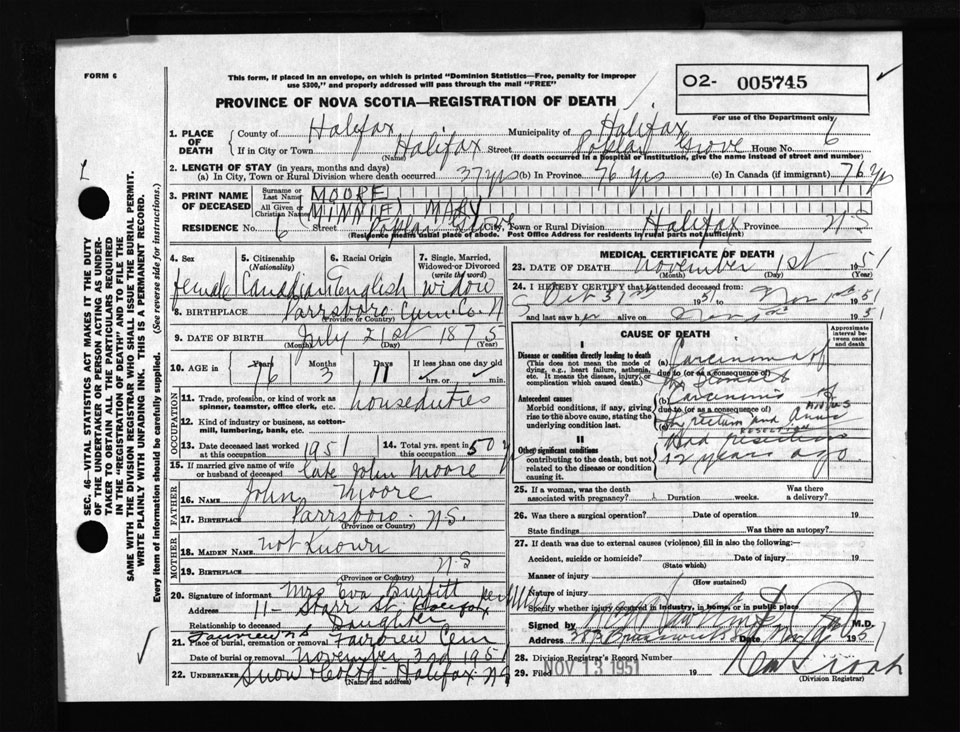 FORM 6
This form, if placed in an envelope, on which is printed "Dominion Statistics—Free, penalty for improper
use $300," and properly addressed will pass through the mail "FREE"
O2- 005745
PROVINCE OF NOVA SCOTIA—REGISTRATION OF DEATH
For use of the Department only
1. PLACE OF DEATH { County of Halifax Municipality of Halifax
If in City or Town Halifax Street Poplar Grove House No. 6
(Name) (If death occurred in a hospital or institution, give the name instead of street and number)
2. LENGTH OF STAY (in years, months and days)
(a) In City, Town or Rural Division where death occurred 37 yrs (b) In Province 76 yrs (c) In Canada (if immigrant) 76 yrs
3. PRINT NAME OF DECEASED { Surname or Last Name MOORE
All Given or Christian Names MINNIE MARY
RESIDENCE No. 6 Street Poplar Grove City, Town or Rural Division Halifax Province N S
(Residence means usual place of abode. Post Office Address for residents in rural parts not sufficient)
SEC. 46—VITAL STATISTICS ACT MAKES IT THE DUTY
OF THE UNDERTAKER OR PERSON ACTING AS UNDER-
TAKER TO OBTAIN ALL THE PARTICULARS REQUIRED
IN THE "REGISTRATION OF DEATH" AND TO FILE THE
SAME WITH THE DIVISION REGISTRAR WHO SHALL ISSUE THE BURIAL PERMIT.
WRITE PLAINLY WITH UNFADING INK. THIS IS A PERMANENT RECORD.
Every item of information should be carefully supplied. (See reverse side for instructions.)
4. Sex
female
5. Citizenship
(Nationality)
Canadian
6. Racial Origin
English
7. Single, Married,
Widowed or Divorced
(write the word)
Widow
8. BIRTHPLACE Parrsboro Cum Co. N
(Province or Country)
9. DATE OF BIRTH July 21st 1875
(Month) (Day) (Year)
10. AGE in Years Months Days If less than one day old
76 3 11 hrs. or min.
OCCUPATION
11. Trade, profession, or kind of work as
spinner, teamster, office clerk, etc. houseduties
12. Kind of industry or business, as cotton-
mill, lumbering, bank, etc.
13. Date deceased last worked
at this occupation 1951
14. Total yrs. spent in
this occupation 50 y
15. If married give name of wife
or husband of deceased late John Moore
FATHER
16. NAME John Moore
17. BIRTHPLACE Parrsboro N.S.
(Province or Country)
MOTHER
18. MAIDEN NAME not Known
19. BIRTHPLACE N S
(Province or Country)
20. Signature of informant Mrs Eva Burfitt
Address 11- Starr St. Halifax
Relationship to deceased Daughter
21. Place of burial, cremation or removal Fairview Cem
Fairview N S
Date of burial or removal November 3rd 1951
22. UNDERTAKER Snow Halifax N S
(Name and address)
MEDICAL CERTIFICATE OF DEATH
23. DATE OF DEATH November 1st 1951
(Month) (Day) (Year)
24. I HEREBY CERTIFY that I attended deceased from:
Oct 31 1951 to Nov 1st 1951
and last saw her alive on Nov 1st 1951
CAUSE OF DEATH
Approximate
interval be-
tween onset
and death
I
Disease or condition directly leading to death
(This does not mean the mode of
dying, e.g., heart failure, asthenia,
etc. It means the disease, injury, or
complication which caused death.)
(a) Carcinoma of
due to (or as a consequence of)
the stomach
Antecedent causes
Morbid conditions, if any, giving
rise to the above cause, stating the
underlying condition last.
(b) Carcinoma of
due to (or as a consequence of)
the rectum and anus
II
Other significant conditions
contributing to the death, but not
related to the disease or condition
causing it.
Had resection
RESECTION
12 years ago.
25. If a woman, was the death
associated with pregnancy? Duration weeks. Was there
a delivery?
26. Was there a surgical operation? Date of operation 19
State findings Was there an autopsy?
27. If death was due to external causes (violence) fill in also the following:—
Accident, suicide or homicide? Date of injury 19
(State which)
Manner of injury
(How sustained)
Nature of injury
Specify whether injury occurred in industry, in home, or in public place
Signed by M.D.
Address Date Nov 1951
28. Division Registrar's Record Number
29. Filed NOV 13 1951 19
(Division Registrar)